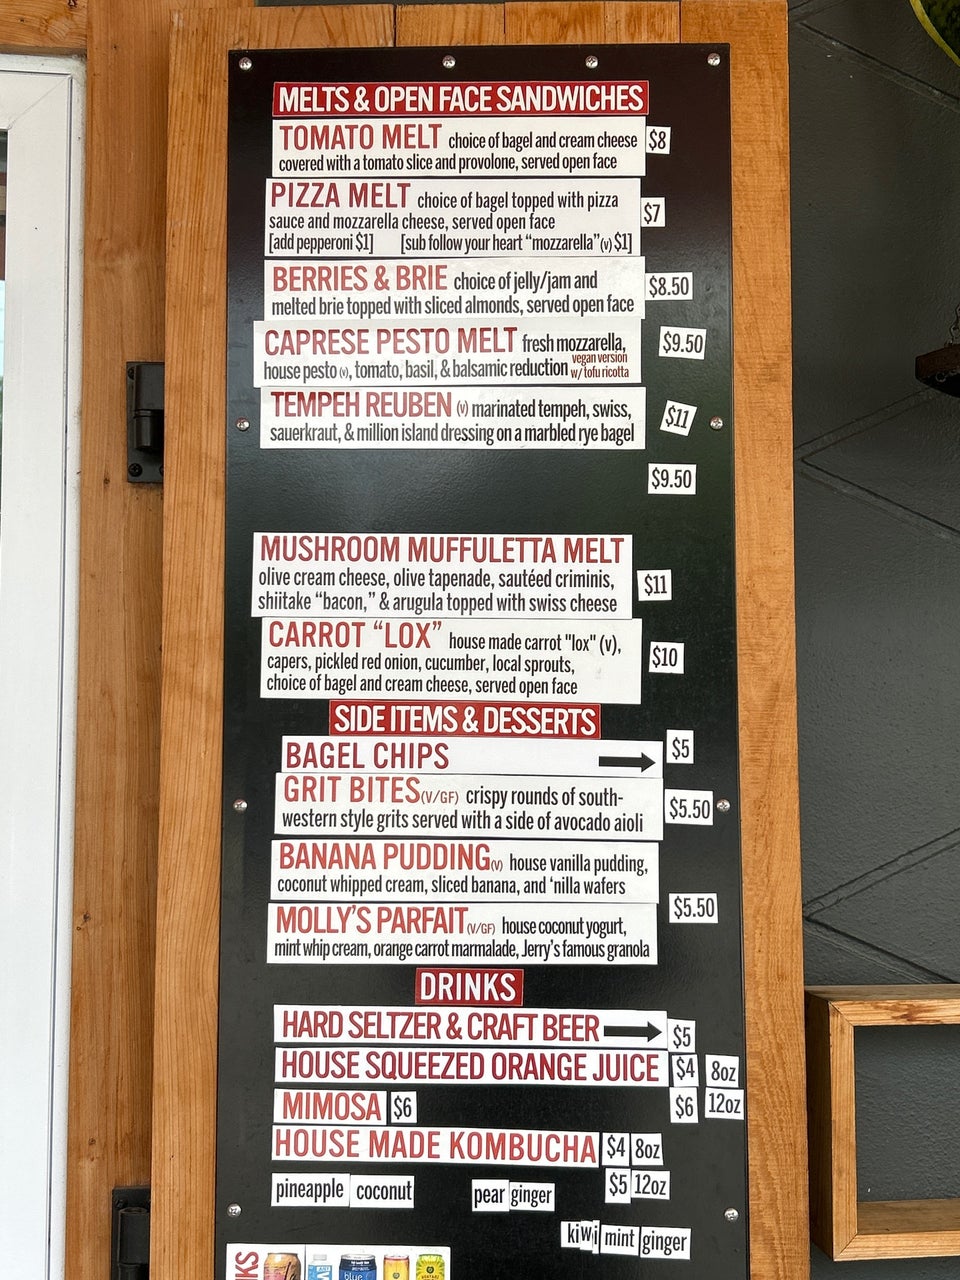 MELTS & OPEN FACE SANDWICHES
TOMATO MELT choice of bagel and cream cheese $8
covered with a tomato slice and provolone, served open face
PIZZA MELT choice of bagel topped with pizza
sauce and mozzarella cheese, served open face $7
[add pepperoni $1] [sub follow your heart "mozzarella" (v) $1]
BERRIES & BRIE choice of jelly/jam and $8.50
melted brie topped with sliced almonds, served open face
CAPRESE PESTO MELT fresh mozzarella, $9.50
house pesto (v), tomato, basil, & balsamic reduction vegan version
w/ tofu ricotta
TEMPEH REUBEN (v) marinated tempeh, swiss, $11
sauerkraut, & million island dressing on a marbled rye bagel
$9.50
MUSHROOM MUFFULETTA MELT
olive cream cheese, olive tapenade, sautéed criminis, $11
shiitake "bacon," & arugula topped with swiss cheese
CARROT "LOX" house made carrot "lox" (v),
capers, pickled red onion, cucumber, local sprouts, $10
choice of bagel and cream cheese, served open face
SIDE ITEMS & DESSERTS
BAGEL CHIPS $5
GRIT BITES (V/GF) crispy rounds of south-
western style grits served with a side of avocado aioli $5.50
BANANA PUDDING (V) house vanilla pudding,
coconut whipped cream, sliced banana, and 'nilla wafers
MOLLY'S PARFAIT (V/GF) house coconut yogurt, $5.50
mint whip cream, orange carrot marmalade, Jerry's famous granola
DRINKS
HARD SELTZER & CRAFT BEER $5
HOUSE SQUEEZED ORANGE JUICE $4 8oz
MIMOSA $6 $6 12oz
HOUSE MADE KOMBUCHA $4 8oz
$5 12oz
pineapple coconut pear ginger
kiwi mint ginger